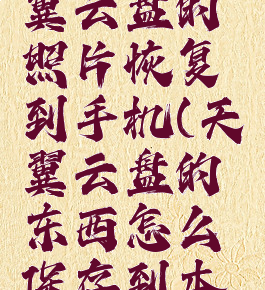 翼云盘的
照片恢复
到手机(天
翼云盘的
东西怎么
保存到本